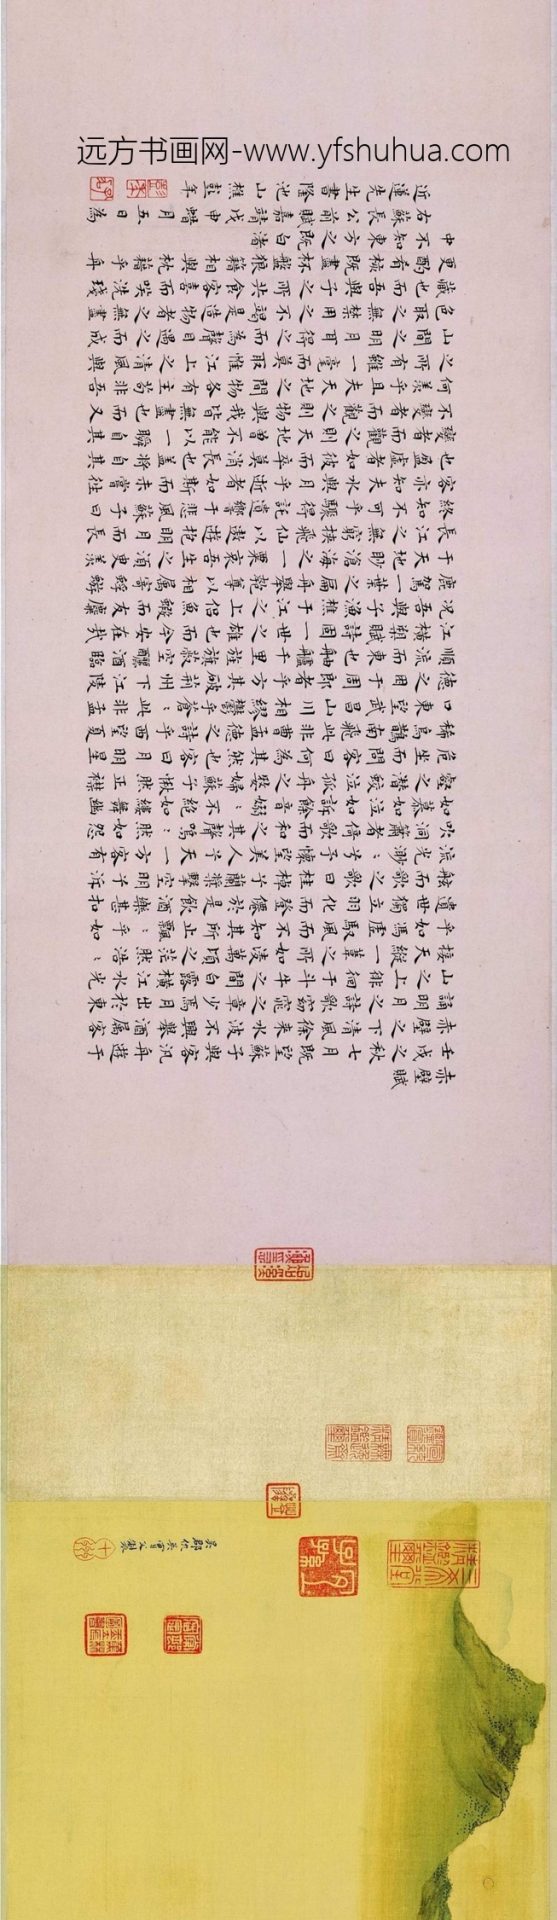 远方书画网-www.yfshuhua.com
赤壁賦
壬戌之秋七月既望蘇子與客汎舟遊于
赤壁之下清風徐來水波不興舉酒屬客
誦明月之詩歌窈窕之章少焉月出於東
山之上徘徊於斗牛之間白露橫江水光
接天縱一葦之所如凌萬頃之茫然浩浩
乎如馮虛御風而不知其所止飄飄乎如
遺世獨立羽化而登僊於是飲酒樂甚扣
舷而歌之歌曰桂棹兮蘭槳擊空明兮泝
流光渺渺兮予懷望美人兮天一方客有
吹洞簫者倚歌而和之其聲嗚嗚然如怨
如慕如泣如訴餘音嫋嫋不絕如縷舞幽
壑之潛蛟泣孤舟之嫠婦蘇子愀然正襟
危坐而問客曰何為其然也客曰月明星
稀烏鵲南飛此非曹孟德之詩乎西望夏
口東望武昌山川相繆鬱乎蒼蒼此非孟
德之困于周郎者乎方其破荊州下江陵
順流而東也舳艫千里旌旗蔽空釃酒臨
江橫槊賦詩固一世之雄也而今安在哉
況吾與子漁樵于江之上侶魚蝦而友麋
鹿駕一葉之扁舟舉匏尊以相屬寄蜉蝣
於天地渺滄海之一粟哀吾生之須臾羨
長江之無窮挾飛仙以遨遊抱明月而長
終知不可乎驟得託遺響於悲風蘇子曰
客亦知夫水與月乎逝者如斯而未嘗往
也盈虛者如彼而卒莫消長也蓋將自其
變者而觀之則天地曾不能以一瞬自其
不變者而觀之則物與我皆無盡也而又
何羨乎且夫天地之間物各有主苟非吾
之所有雖一毫而莫取惟江上之清風與
山間之明月耳得之而為聲目遇之而成
色取之無禁用之不竭是造物者之無盡
藏也而吾與子之所共食客喜而笑洗盞
更酌肴核既盡杯盤狼籍相與枕藉乎舟
中不知東方之既白
右蘇長公前賦嘉靖戊申臘月五日為
近蓮先生書隆池山樵彭年
吳郡仇英實父製